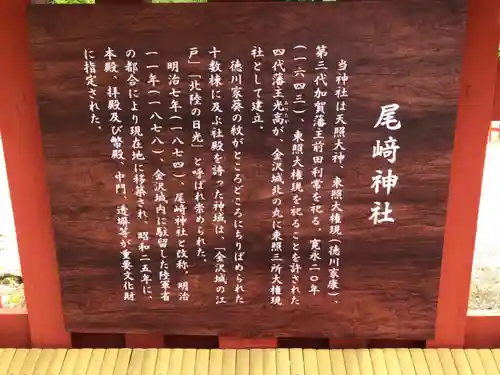 尾﨑神社
当神社は天照大神、東照大権現（徳川家康）、
第三代加賀藩主前田利常を祀る。寛永二〇年
（一六四三）、東照大権現を祀ることを許された
四代藩主光高が、金沢城北の丸に東照三所大権現
みつたか
社として建立。
徳川家葵の紋がところどころにちりばめられた
十数棟に及ぶ社殿を誇った神域は、「金沢城の江
戸」「北陸の日光」と呼ばれ崇められた。
明治七年（一八七四）、尾﨑神社と改称。明治
一一年（一八七八）、金沢城内に駐留した陸軍省
の都合により現在地に移築され、昭和二五年に、
本殿、拝殿及び幣殿、中門、透塀等が重要文化財
に指定された。